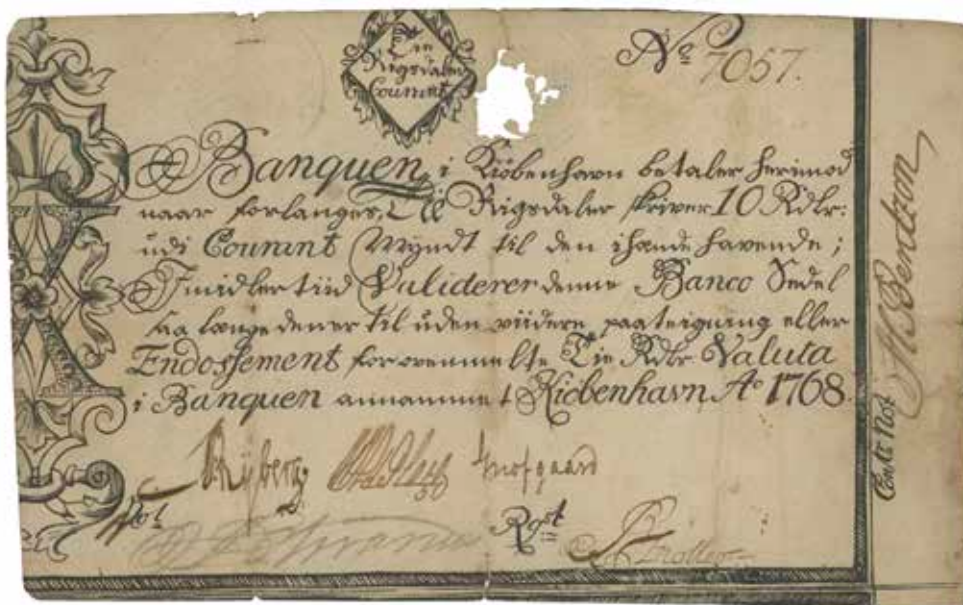 Tie
Rigsdaler
Courant
No 7057.
Banquen i Kiöbenhavn betaler herimod
naar forlanges, Tie Rigsdaler skriver 10 Rdlr:
udi Courant Myndt til den ihændehavende;
Imidlertiid Validerer denne Banco Sedel
saa længe dener til uden viidere paateigning eller
Endossement for ovenmelte Tie Rdlr Valuta
i Banquen annammet Kiöbenhavn Ao 1768.
Not
Rgst
Contr Not